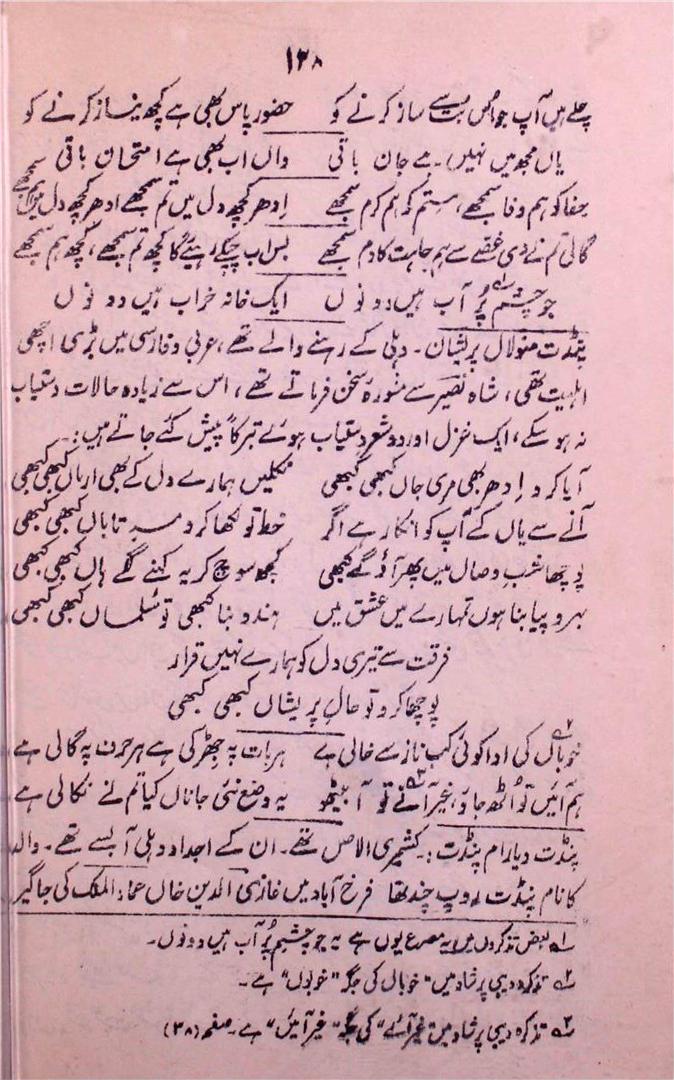 ۱۳۸
چلے ہیں آپ جو اُس بت سے ساز کرنے کو حضور پاس بھی ہے کچھ نیاز کرنے کو
یاں مجھ میں نہیں ہے جان باقی واں اب بھی ہے امتحان باقی
جفا کو ہم وفا سمجھے، ستم کو ہم کرم سمجھے اِدھر کچھ دل میں تم سمجھے ادھر کچھ دل میں ہم سمجھے
گالی تم نے دی غصے سے ہم چاہت کا دم سمجھے بس اب چپکے رہئیے گا کچھ تم سمجھے، کچھ ہم سمجھے
جو چشم پُر آب ہیں دونوں ایک خانہ خراب ہیں دونوں
پنڈت منولال پریشان۔ دہلی کے رہنے والے تھے، عربی و فارسی میں بڑی اچھی
اہلیت تھی، شاہ نصیر سے مشورہ سخن فرماتے تھے، اس سے زیادہ حالات دستیاب
نہ ہو سکے، ایک غزل اور دو شعر دستیاب ہوئے تبرکاً پیش کئے جاتے ہیں:۔
آیا کرو اِدھر بھی مری جاں کبھی کبھی نکلیں ہمارے دل کے بھی ارماں کبھی کبھی
آنے سے یاں کے آپ کو انکار ہے اگر خط تو لکھا کرو مہ تاباں کبھی کبھی
پوچھا شب وصال میں پھر آؤ گے کبھی کچھ سوچ کر یہ کہنے لگے ہاں کبھی کبھی
بہروپیا بنا ہوں تمہارے میں عشق میں ہندو بنا کبھی تو مُسلماں کبھی کبھی
فرقت سے تیری دل کو ہمارے نہیں قرار
پوچھا کرو تو حالِ پریشاں کبھی کبھی
خوباں۲؎ کی ادا کوئی کب ناز سے خالی ہے ہر بات پہ جھڑکی ہے ہر حرف پہ گالی ہے
ہم آئیں تو اُٹھ جاؤ، غیر آئے۳؎ تو آ بیٹھو یہ وضع نئی جاناں کیا تم نے نکالی ہے
پنڈت دیارام پنڈت:۔ کشمیری الاصل تھے۔ ان کے اجداد دہلی آ بسے تھے۔ والد
کا نام پنڈت روپ چند تھا فرخ آباد میں غازی الدین خاں عماد الملک کی جاگیر
۱؎ بعض تذکروں میں یہ مصرع یوں ہے یہ جو چشمِ پُر آب ہیں دونوں۔
۲؎ تذکرہ دیبی پرشاد میں "خوباں کی جگہ "خوبوں" ہے۔
۳؎ تذکرہ دیبی پرشاد میں "غیر آئے" کی جگہ "غیر آئیں" ہے۔ صفحہ (۳۸)